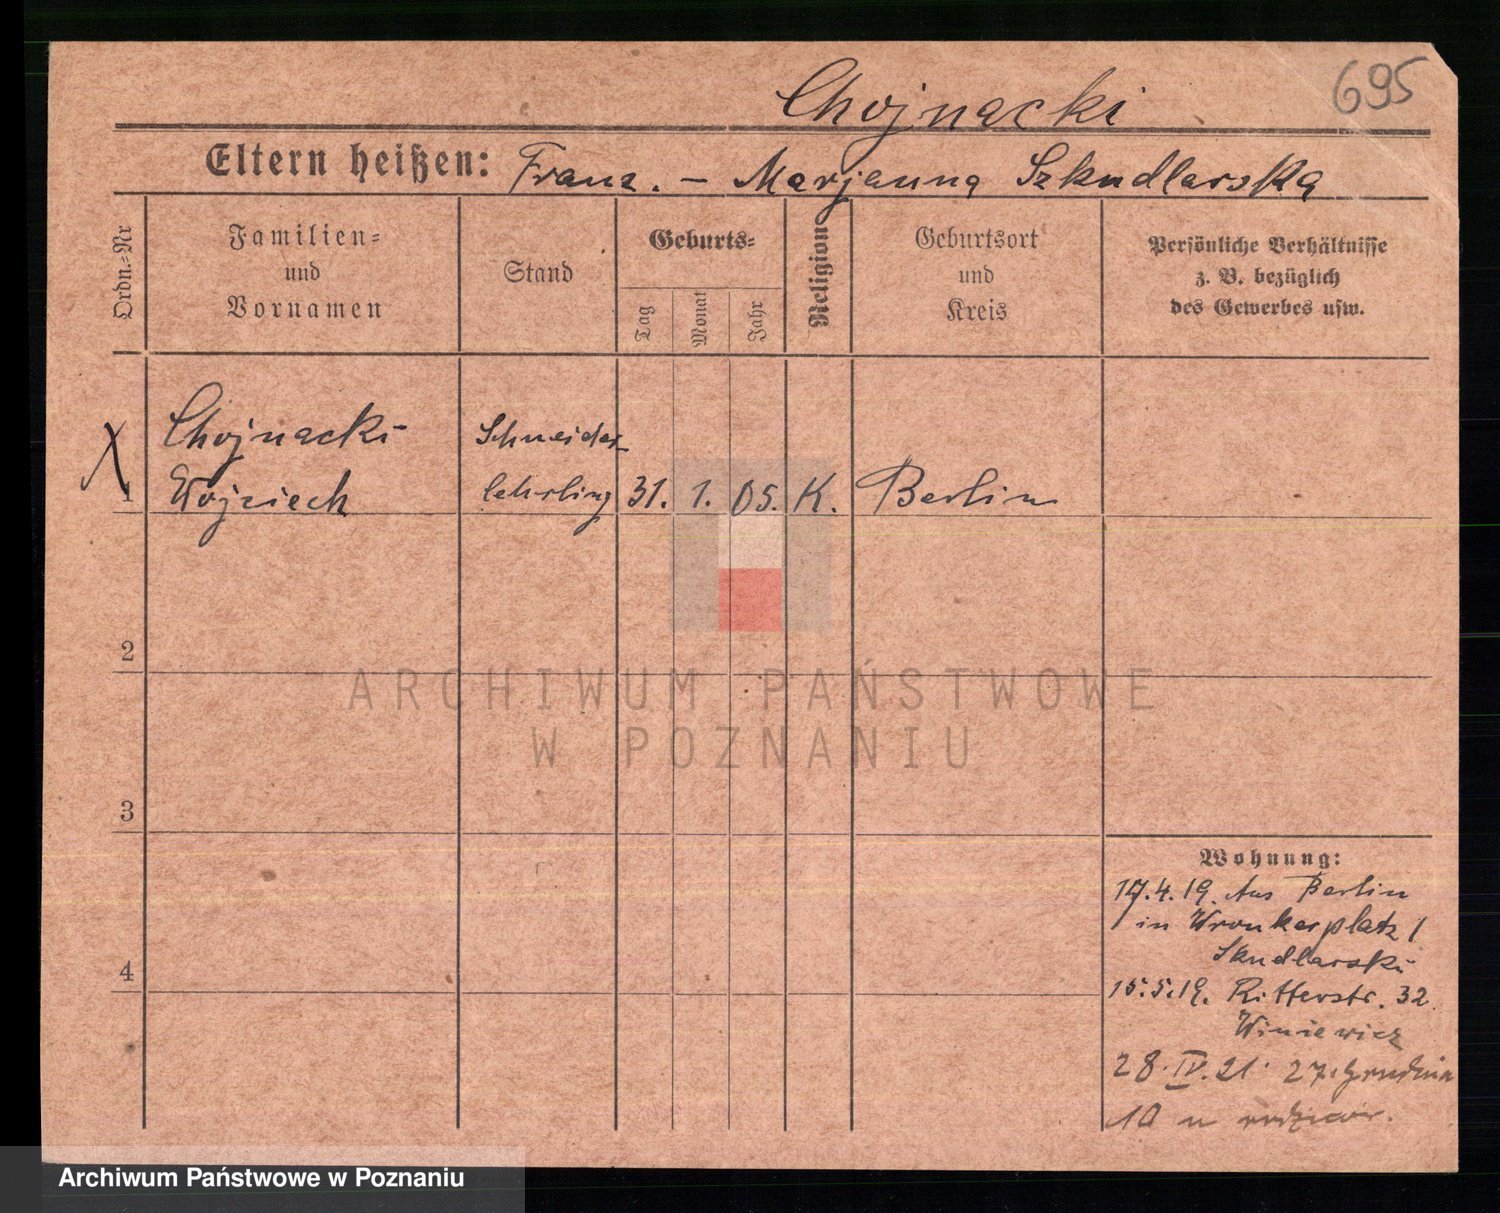 695
Chojnacki
Eltern heißen: Franz. – Marjanna Szkudlarska
Ordn.-Nr
Familien-
und
Vornamen
Stand
Geburts-
Tag
Monat
Jahr
Religion
Geburtsort
und
Kreis
Persönliche Verhältnisse
z. B. bezüglich
des Gewerbes usw.
Chojnacki Schneider-
1 Wojziech lehrling 31. 1. 05. K. Berlin
2
3
4
Wohnung:
17.4.19. Aus Berlin
in Wronkerplatz 1
Skudlarski
15.5.19. Ritterstr. 32
Winiewicz
28.IV.21. 27. Grudnia
10 u rodziców.
ARCHIWUM PAŃSTWOWE
W POZNANIU
Archiwum Państwowe w Poznaniu